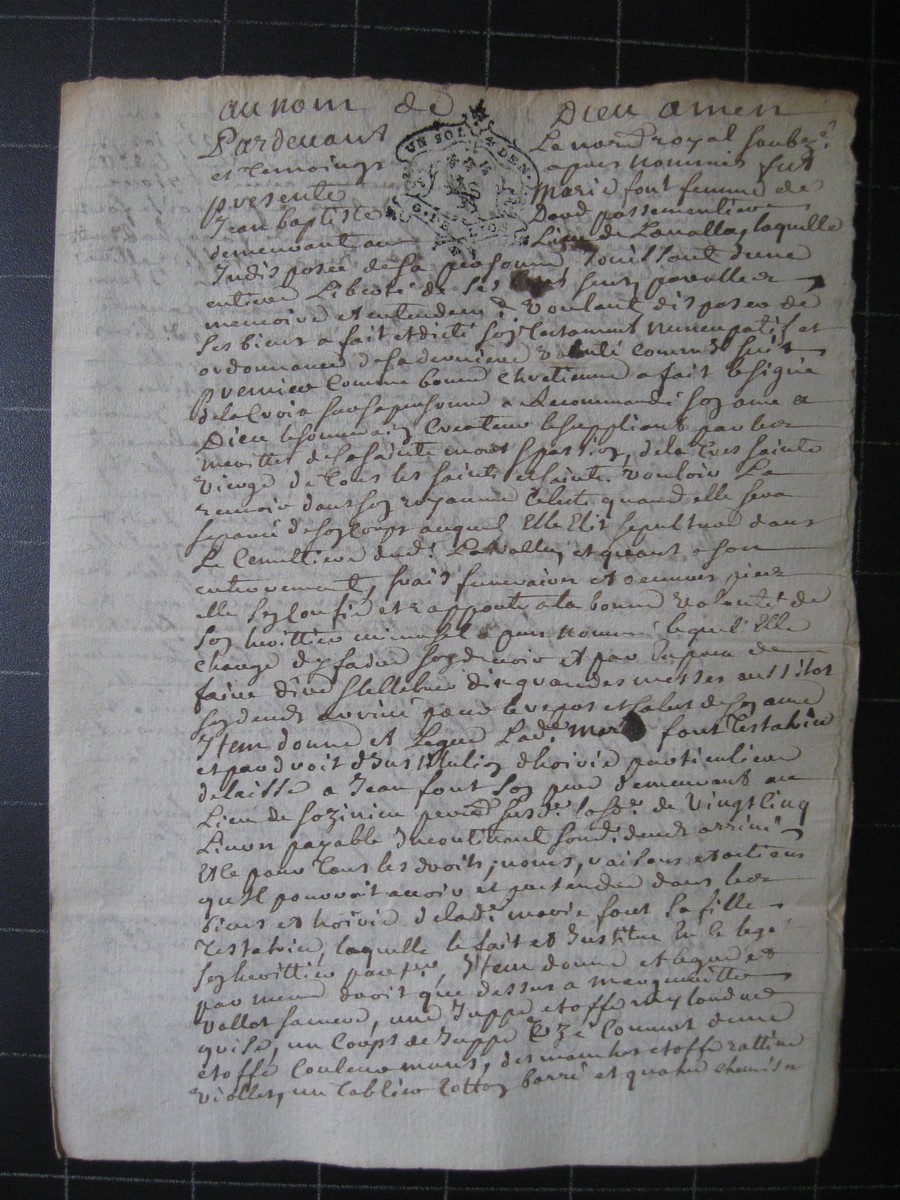 au nom de Dieu amen
Pardevant Le no.re royal soubz.é
et temoings apres nommés fut
presente Marie font femme de
Jean baptiste Davd passementier
demeurant au Lieu de Lavallas, laquelle
Indisposée de sa personne Jouissant dune
entiere Liberté de ses sens, parolle
memoire et entendem.t voulant disposer de
ses biens a fait et dicté son testament nuncupatif et
ordonnance de sa derniere volonté comme s'Suit
premier comme bonne Chretienne a fait le signe
de la Croix sur sa personne a Recommandé son ame a
Dieu le souverain Createur le suppliant par les
merittes de sa sainte mort & passion, de la tres sainte
vierge de tous les saints et saintes vouloir La
recevoir dans son royaume Celeste quand elle sera
separée de son Corps auquel Elle Elit sepulture dans
Le Cemettiere dud.t Lavallas, et quant a son
enterrement, frais funeraires et oeuvres pies
elle s'en confie et rapporte a la bonne volonté de
son herittier universel apres nommé lequel Elle
charge d'en faire son devoir et par Exprès de
faire dire & cellebrer dix grandes messes aussitot
son deceds arrivé pour le repos et salut de son ame
Item donne et Legue Lad.e Marie font Testatrice
et par droit d'Institution d'hoirie particuliere
delaisse a Jean font son pere demeurant au
Lieu de
Livres payable Incontinant sondit deceds arrivé
Et ce pour tous les droits, noms, raisons et actions
qu'Il pourroit avoir et pretendre dans les
biens et hoirie de lad.e marie font sa fille
Testatrice, laquelle le fait et Institue En ce legs
son herittier par.er, Item donne et legue et
par meme droit que dessus a margueritte
vallot sa mere, une Juppe etoffe
grise, un Corps de Juppe dune
etoffe Couleur, des manches etoffe rattine
viollet, un tablier Cotton barré et quatre chemises